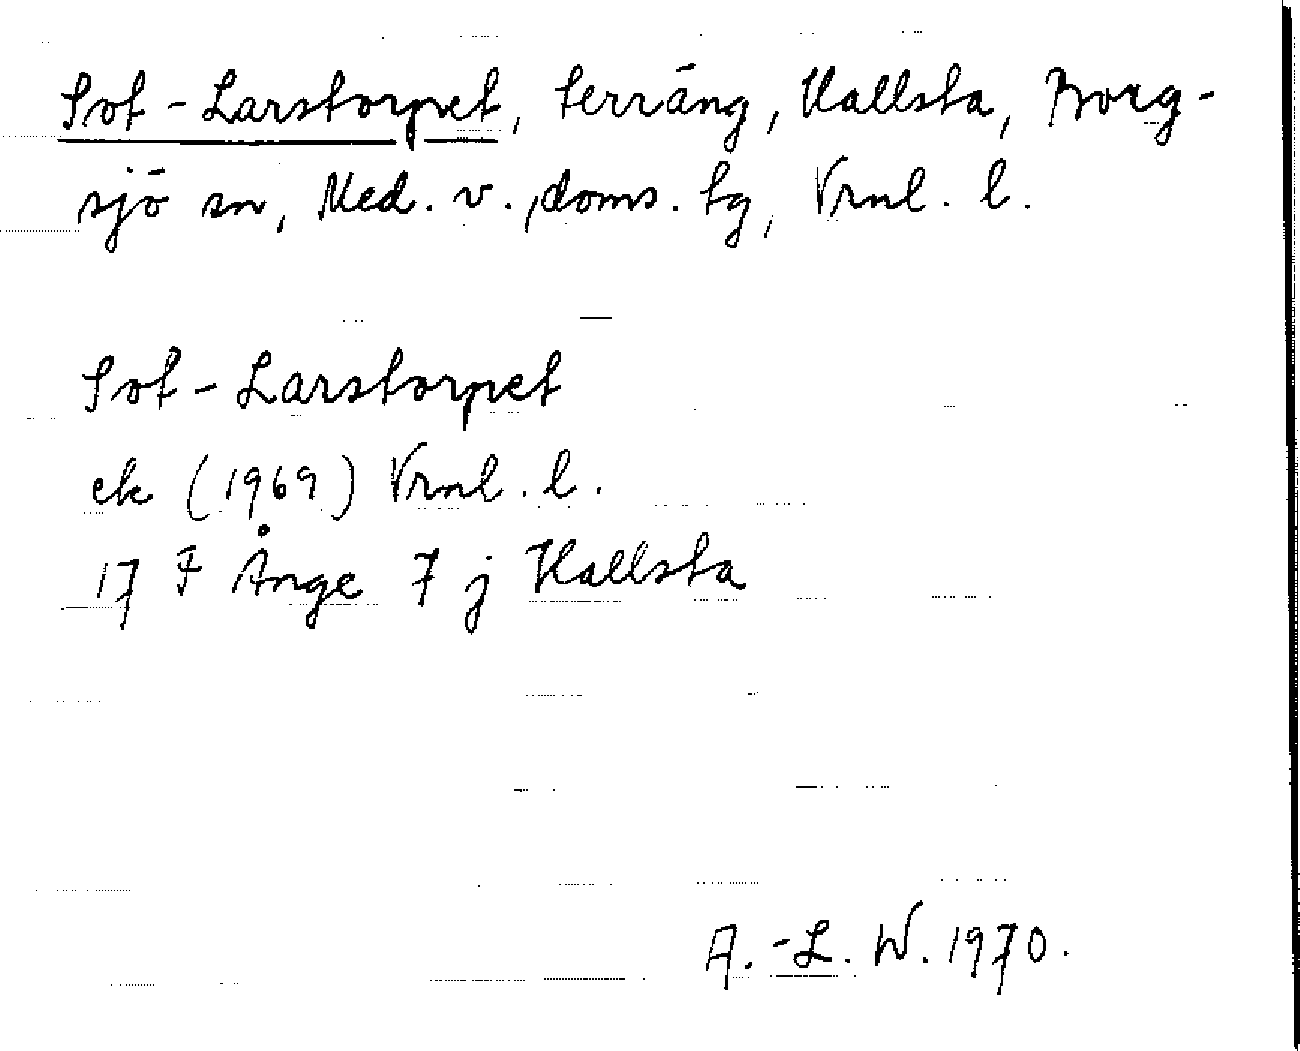 Sot-Larstorpet, terräng, Hallsta, Borg-
sjö sn, Med. v., doms. tg, Vrnl. l.
Sot-Larstorpet
ek (1969) Vrnl. l.
17 F Ånge 7 j Hallsta
A.-L. W. 1970.